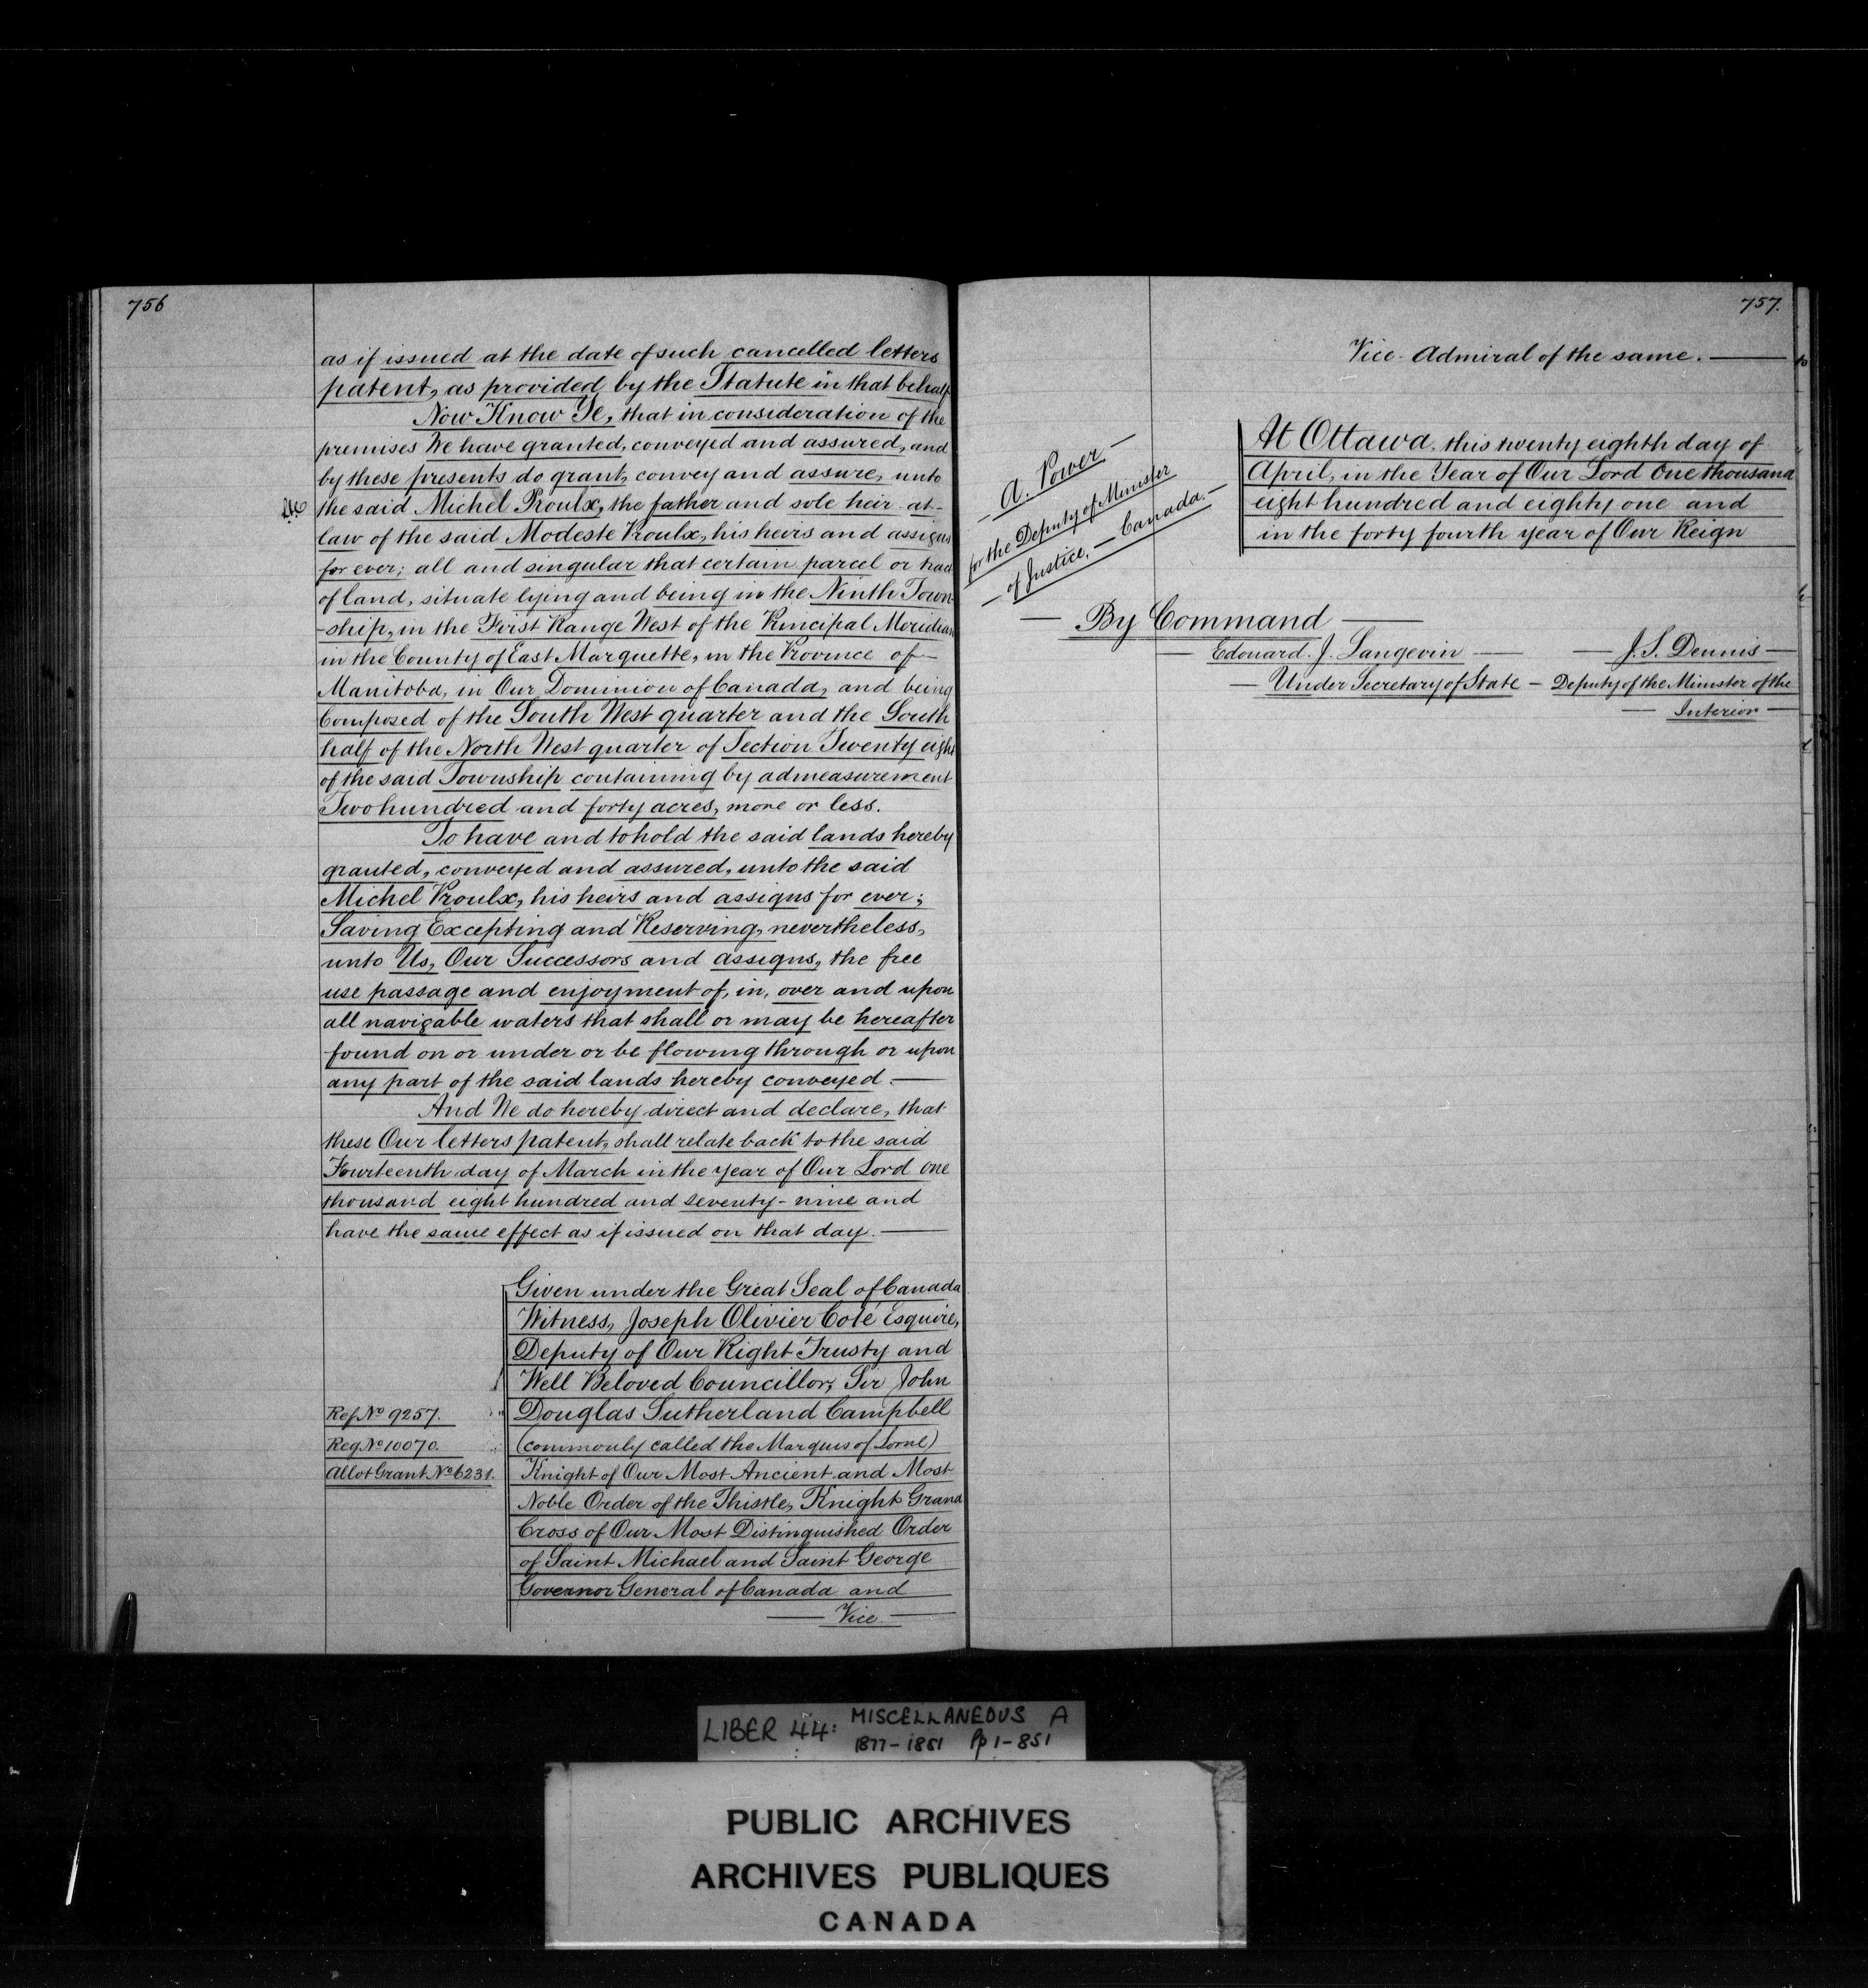 756
as if issued at the date of such cancelled letters
patent, as provided by the Statute in that behalf
Now Know Ye, that in consideration of the
premises We have granted, conveyed and assured, and
by these presents do grant, convey and assure, unto
the said Michel Proulx, the father and sole heir-at-
law of the said Modeste Proulx, his heirs and assigns
for ever; all and singular that certain parcel or tract
of land, situate lying and being in the Ninth Town
-ship, in the First Range West of the Principal Meridian
in the County of East Marquette, in the Province of
Manitoba, in Our Dominion of Canada, and being
Composed of the South West quarter and the South
half of the North West quarter of Section Twenty eight
of the said Township containing by admeasurement
Two hundred and forty acres, more or less.
To have and to hold the said lands hereby
granted, conveyed and assured, unto the said
Michel Proulx, his heirs and assigns for ever;
Saving Excepting and Reserving, nevertheless,
unto Us, Our Successors and assigns, the free
use passage and enjoyment of, in, over and upon
all navigable waters that shall or may be hereafter
found on or under or be flowing through or upon
any part of the said lands hereby conveyed.
And We do hereby direct and declare, that
these Our letters patent, shall relate back to the said
Fourteenth day of March in the year of Our Lord one
thousand eight hundred and seventy-nine and
have the same effect as if issued on that day.
Given under the Great Seal of Canada
Witness, Joseph Olivier Coté Esquire,
Deputy of Our Right Trusty and
Well Beloved Councillor, Sir John
Douglas Sutherland Campbell
(commonly called the Marquis of Lorne)
Knight of Our Most Ancient and Most
Noble Order of the Thistle, Knight Grand
Cross of Our Most Distinguished Order
of Saint Michael and Saint George
Governor General of Canada and
Vice
Ref No 9257.
Reg No 10070.
Allot Grant No 6231.
757.
Vice-Admiral of the same.
At Ottawa, this twenty eighth day of
April, in the Year of Our Lord One thousand
eight hundred and eighty one and
in the forty fourth year of Our Reign
A. Power
for the Deputy of Minister
of Justice, - Canada.
By Command
Edouard. J. Langevin
Under Secretary of State
J. S. Dennis
Deputy of the Minister of the
Interior
LIBER 44: MISCELLANEOUS A
1877-1881 Pp 1-851
PUBLIC ARCHIVES
ARCHIVES PUBLIQUES
CANADA